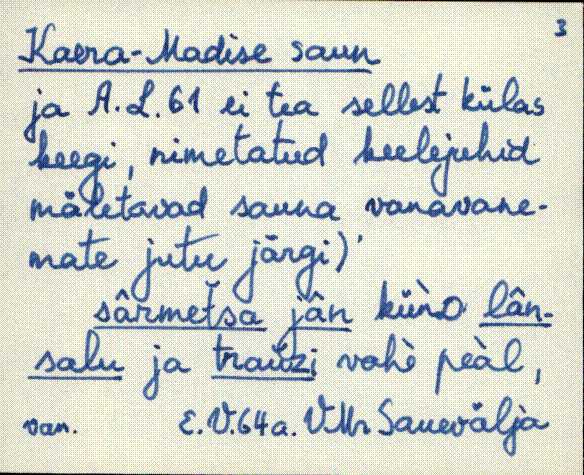 3
Kaera-Madise saun
ja A.L.61 ei tea sellest külas
keegi, nimetatud keelejuhid
mäletavad sauna vanavane-
mate jutu järgi)'
sârmet̆sa jân küǜno lân-
salu ja traǔzi vahè peàl,
van. E.V.64a. VMr Sauevälja